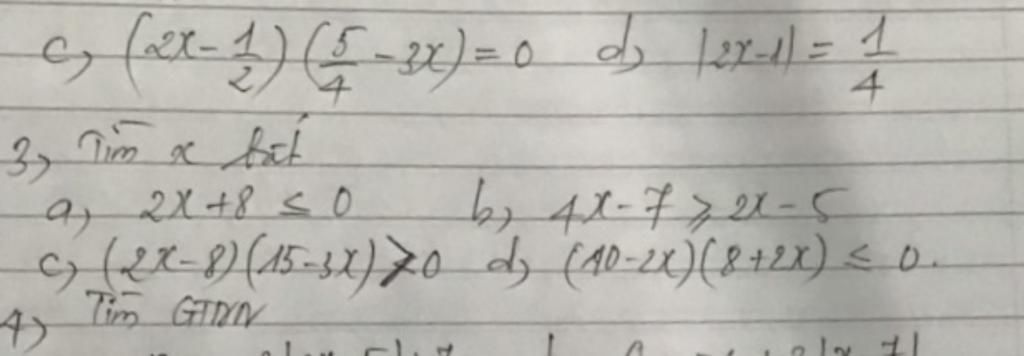 c) (2x - 1/2)(5/4 - 3x) = 0 d) |2x-1| = 1/4
3) Tìm x biết
a) 2x+8 ≤ 0 b) 4x-7 ≥ 2x-5
c) (2x-8)(15-3x) > 0 d) (10-2x)(8+2x) ≤ 0.
4) Tìm GTNN